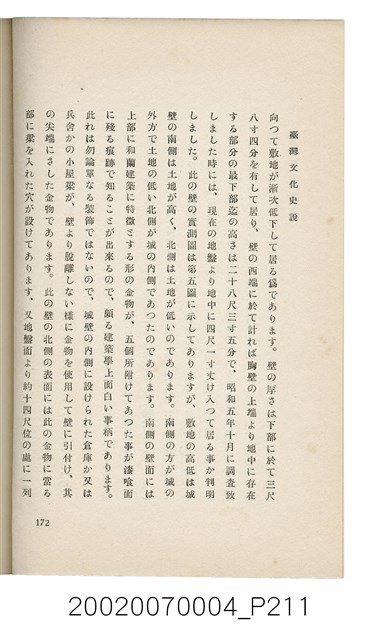 臺灣文化史說
向つて敷地が漸次低下して居る爲であります。壁の厚さは下部に於て三尺
八寸四分を有して居り、壁の西端に於て計れば胸壁の上端より地中に存在
する部分の最下部迄の高さは二十八尺三寸五分で、昭和五年十月に調査致
しました時には、現在の地盤より地中に四尺一寸丈け入つて居る事か判明
しました。此の壁の實測圖は第五圖に示してありますが、敷地の高低は城
壁の南側は土地が高く、北側は土地が低いのであります。南側の方が城の
外方で土地の低い北側が城の內側であつたのであります。南側の壁面には
上部に和蘭建築に特徵とする形の金物が、五個所附けてあつた事が漆喰面
に殘る痕跡で知ることが出來るので、頗る建築學上面白い事柄であります。
此れは勿論單なる裝飾ではないので、城壁の內側に設けられた倉庫か又は
兵舍かの小屋梁が、壁より脫離しない樣に金物を使用して壁に引付け、其
の尖端にさした金物であります。此の壁の北側の表面には此の金物に當る
部に梁を入れた穴が設けてあります、又地盤面より約十四尺位の處に一列
172
20020070004_P211